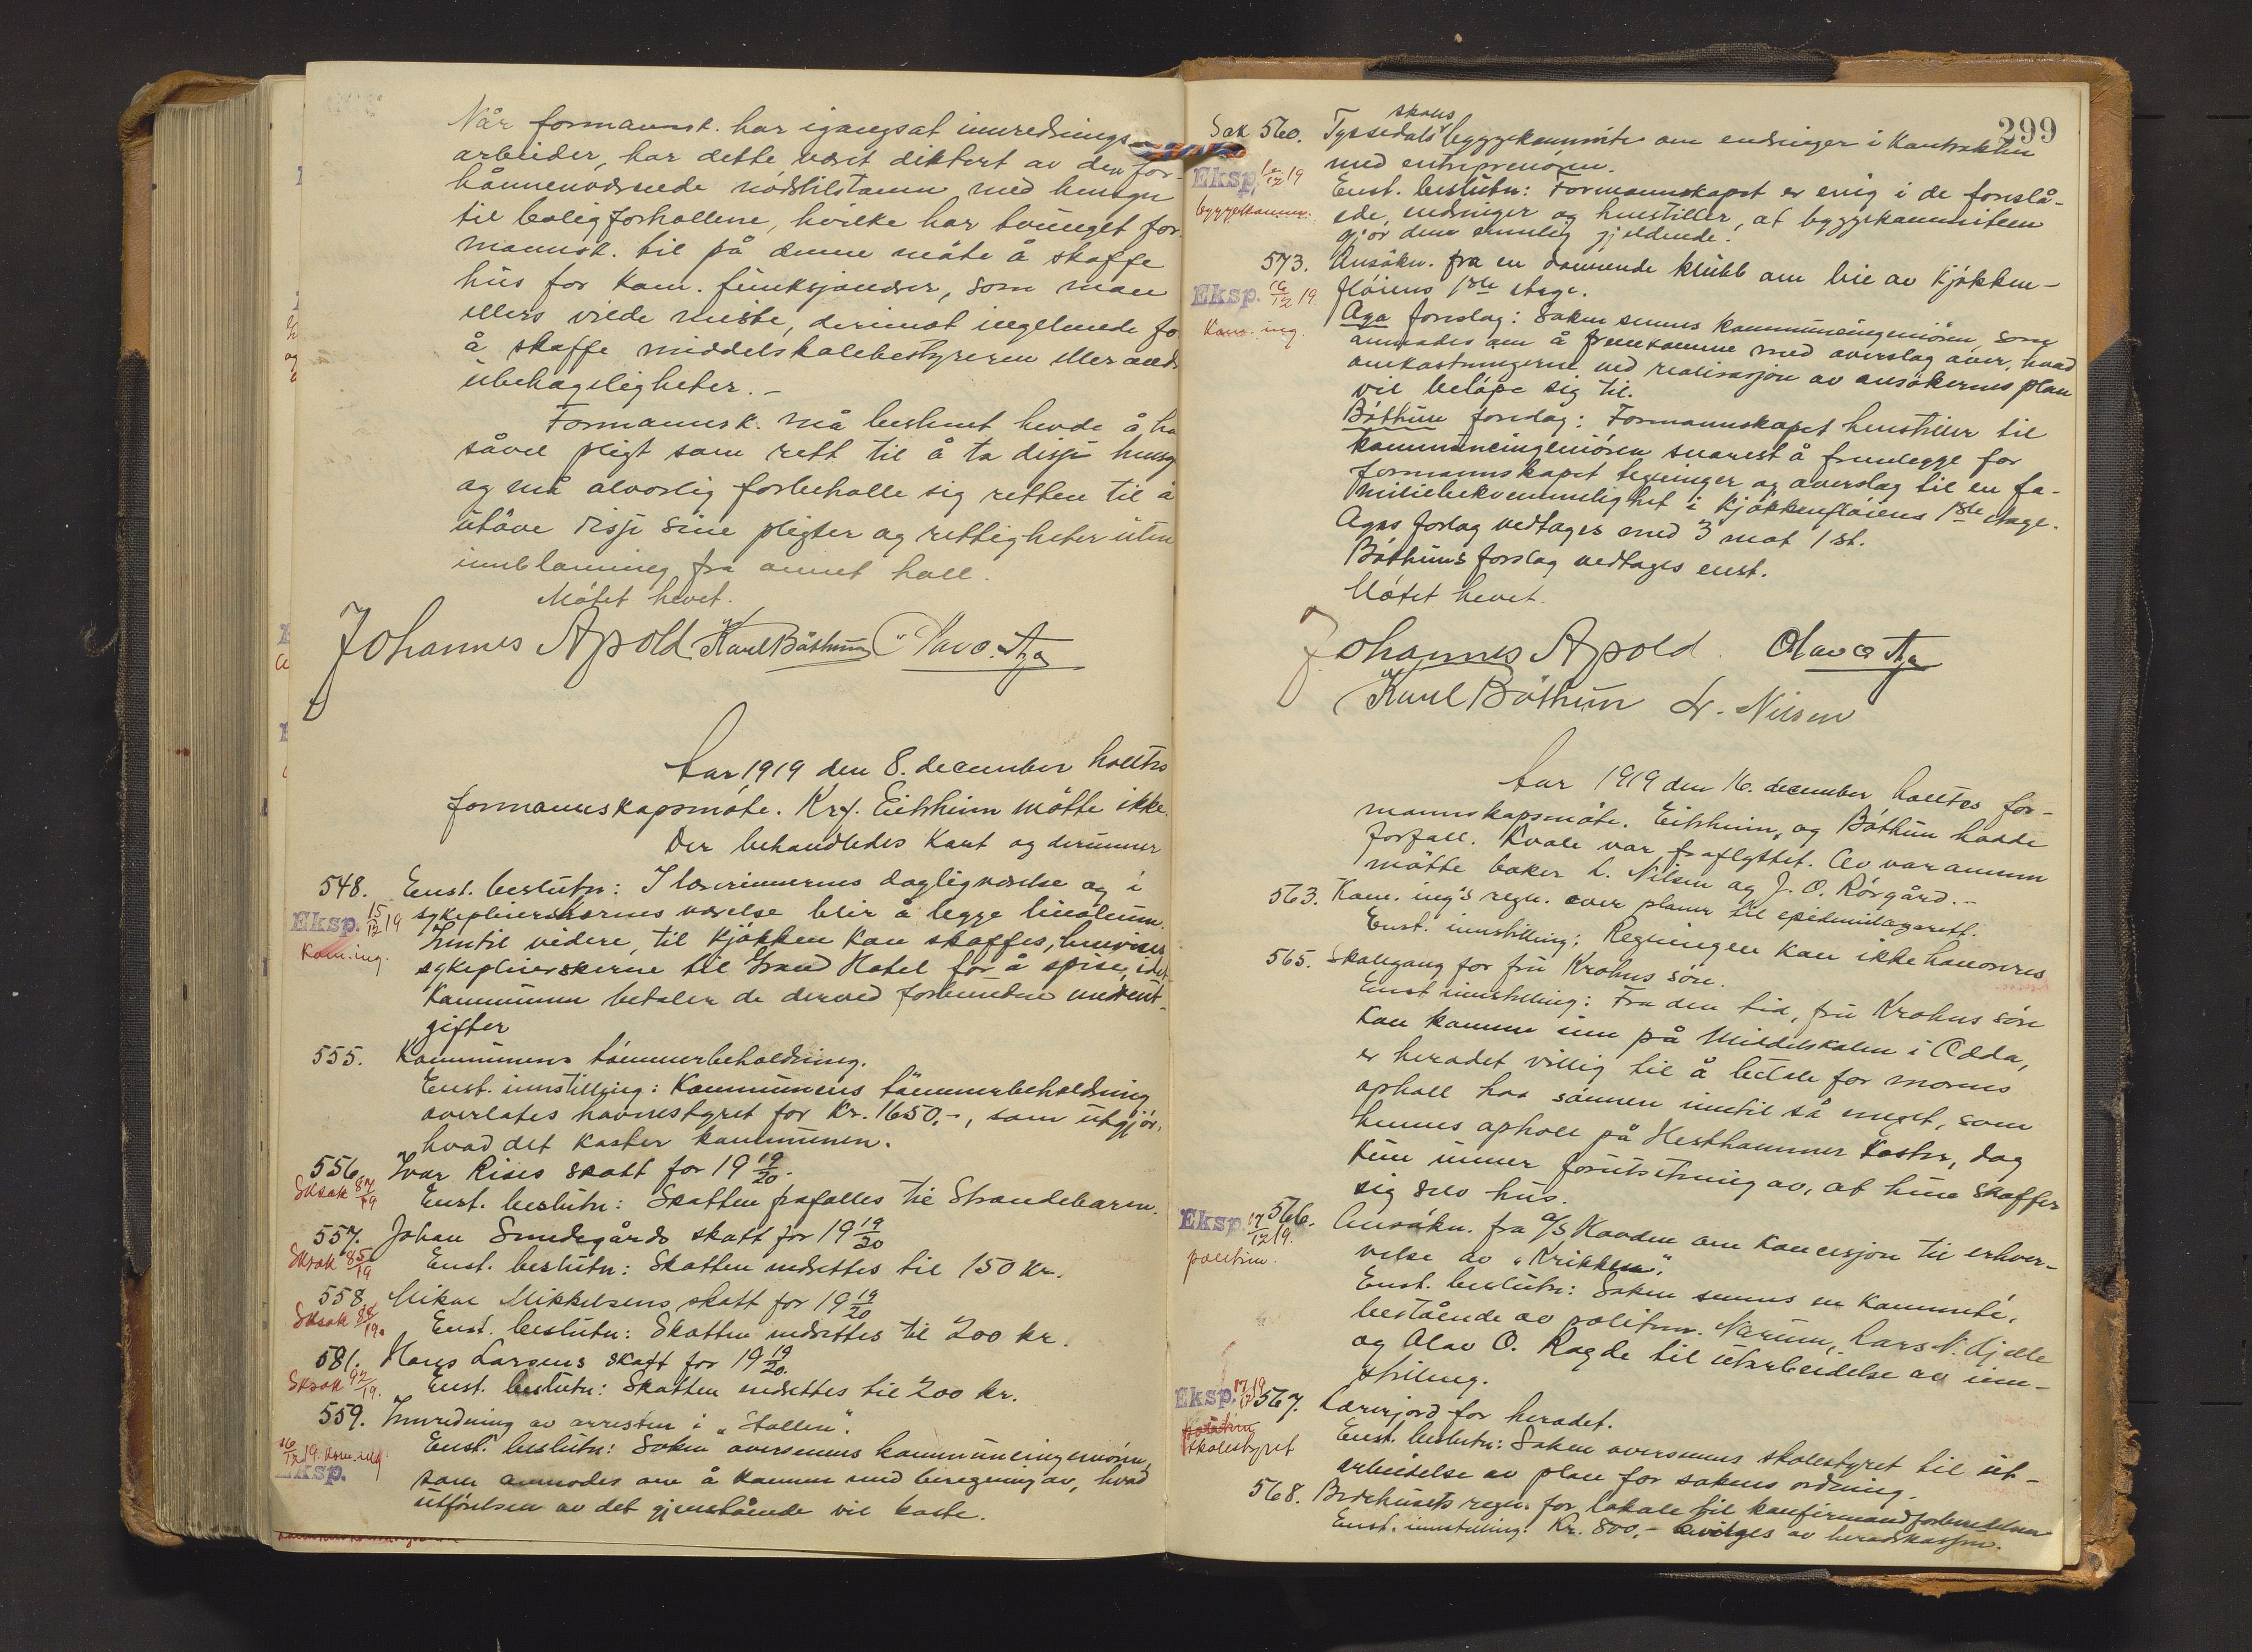 Når formannsk. har igangsat innrednings-
arbeider, har dette været diktert av den for-
håndenværende nödstilstann med hensyn
til boligforhollene, hvilke har tvunget for-
mannsk. til på denne måte å skaffe
hus for kom. funksjonærer, som man
ellers vilde miste, derimot ingelunde for
å skaffe middelskolebestyreren eller andre
ubehageligheter.-
Formannsk. må bestemt hevde å ha
såvel pligt som rett til å ta disse hensyn
og må alvorlig forbeholle sig retten til å
utöve disse sine pligter og rettigheter uten
innblanning fra annet holl.
Mötet hevet.
Johannes Apold Karl Böthun Olav O. Aga
Aar 1919 den 8. december holltes
formannskapsmöte. Krf. Eitrheim mötte ikke.
Der behandledes kart og
548. Enst. beslutn: I lærerinnernes dagligværelse og i
Eksp. 15/12 19 sykepleierskernes værelse blir å legge linoleum.
Kom.ing. Inntil videre, til kjökken kan skaffes, henvises
sykepleierskerne til Grand Hotel for å spise, idet
kommunen betaler de derved forbundne merut-
gifter
555. Kommunens tömmerbeholdning.
Enst. innstilling: Kommunens tömmerbeholdning
overlates havnestyret for kr. 1650,-, som utgjör,
hvad det koster kommunen.
556. Ivar Rises skatt for 19 19/20.
Sksak 87/19 Enst. beslutn: Skatten frafalles til Strandebarm.
557. Johan Smedegårds skatt for 19 19/20
Sksak 85/19 Enst. beslutn: Skatten nedsettes til 150 kr.
558. Mikal Mikkelsens skatt for 19 19/20
Sksak 88/19. Enst. beslutn: Skatten nedsettes til 200 kr.
581. Hans Larsens skatt for 19 19/20.
Sksak 92/19. Enst. beslutn: Skatten nedsettes til 200 kr.
559. Innredning av arresten i "Stallen".
16/12 19. Kom.ing. Enst. beslutn: Saken oversennes kommuneingeniören,
Eksp. som anmodes om å komme med beregning av, hvad
utförelsen av det gjenstående vil koste.
299
Sak 560. Tyssedals skoles byggekommite om endringer i kontrakten
Eksp. 1/12 19 med entreprenören.
byggekomm. Enst. beslutn: Formannskapet er enig i de foreslå-
ede endringer og henstiller, at byggekommiteen
gjör dem gjeldende.
573. Ansökn. fra en dannende klubb om leie av kjökken-
Eksp. 16/12 19. flöiens 1ste etage.
Kom.ing. Aga foreslog: Saken sennes kommuneingeniören, som
anmodes om å fremkomme med overslag over, hvad
omkostningerne ved realisasjon av ansökernes plan
vil belöpe sig til.
Böthun foreslog: Formannskapet henstiller til
kommuneingeniören snarest å fremlegge for
formannskapet tegninger og overslag til en fa-
miliebekvemmelighet i kjökkenflöiens 1ste etage.
Agas forslag vedtages med 3 mot 1 st.
Böthuns forslag vedtages enst.
Mötet hevet.
Johannes Apold. Olav O. Aga
Karl Böthun L. Nilsen
Aar 1919 den 16. december holltes for-
mannskapsmöte. Eitrheim og Böthun hadde
forfall. Kvale var fraflyttet. Av varamenn
mötte baker L. Nilsen og J. O. Rörgård.-
563. Kom. ing's regn. over planer til epidemilazarett.
Enst. innstilling: Regningen kan ikke honoreres
565. Skolegang for fru Krohns sön.
Enst innstilling: Fra den tid, fru Krohns sön
kan komme inn på Middelskolen i Odda,
er heradet villig til å betale for morens
opholl hos sönnen inntil så meget, som
hennes opholl på Hesthammer koster, dog
kun under forutsetning av, at hun skaffer
sig selv hus.
Eksp. 17/12 19. 566. Ansökn. fra a/s Havden om koncesjon til erhver-
politim. velse av "Krikken".
Enst. beslutn: Saken sennes en kommité,
bestående av politim. Nærum, Lars N. Mjelle
og Olav O. Ragde til utarbeidelse av inn-
stilling.
Eksp. 17/12 19 567. Lærerjord for heradet.
skolestyret Enst. beslutn: Saken oversennes skolestyret til ut-
arbeidelse av plan for sakens ordning.
568. Bedehusets regn. for lokale til konfirmandforberedelsen
Enst. innstilling: Kr. 800,- bevilges av heradskassen.